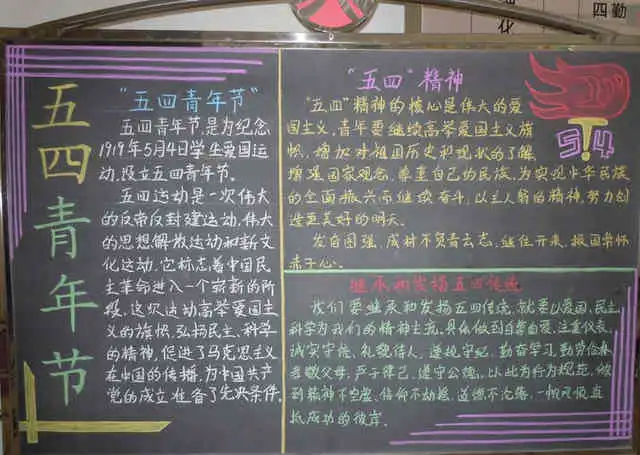 化
四勤
五四青年节
"五四青年节"
五四青年节,是为纪念
1919年5月4日学生爱国运
动,设立五四青年节。
五四运动是一次伟大
的反帝反封建运动,伟大
的思想解放运动和新文
化运动,它标志着中国民
主革命进入一个崭新的阶
段。这次运动高举爱国主
义的旗帜,弘扬民主,科学
的精神,促进了马克思主义
在中国的传播,为中国共产
党的成立准备了先决条件。
"五四"精神
"五四"精神的核心是伟大的爱
国主义,青年要继续高举爱国主义旗
帜,增加对祖国历史和现状的了解
增强国家观念,尊重自己的民族,为实现中华民族
的全面振兴而继续奋斗,以主人翁的精神,努力创
造更美好的明天。
发奋图强,成材不负青云志,继往开来,报国常怀
赤子心。
54
继承和发扬五四传统
我们要继承和发扬五四传统,就要以爱国,民主,
科学为我们的精神主流。具体做到自尊自爱,注重仪表,
诚实守信,礼貌待人,遵规守纪,勤奋学习,勤劳俭朴
孝敬父母,严于律己,遵守公德,以此为行为规范,做
到精神不空虚,信仰不动摇,道德不沦丧,一帆风顺直
抵成功的彼岸。